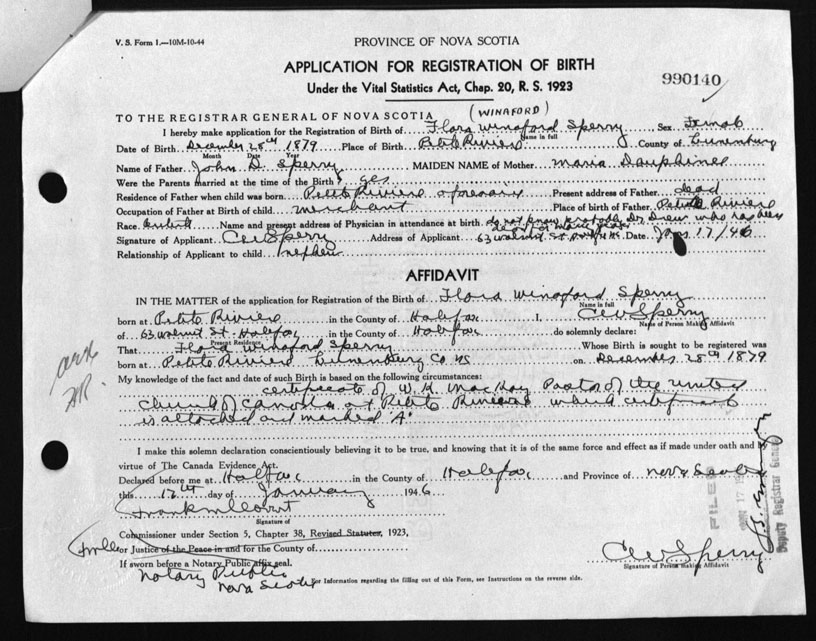 V. S. Form 1.—10M-10-44
PROVINCE OF NOVA SCOTIA
APPLICATION FOR REGISTRATION OF BIRTH
Under the Vital Statistics Act, Chap. 20, R. S. 1923
990140
(WINAFORD)
TO THE REGISTRAR GENERAL OF NOVA SCOTIA
I hereby make application for the Registration of Birth of Flora Winaford Sperry Sex Female
Name in full
Date of Birth December 28th 1879 Place of Birth Petite Riviere County of Lunenburg
Month Date Year
Name of Father John D. Sperry MAIDEN NAME of Mother Maria Dauphinee
Were the Parents married at the time of the Birth? yes
Residence of Father when child was born Petite Riviere Present address of Father dead
Occupation of Father at Birth of child merchant Place of birth of Father Petite Riviere
Race Name and present address of Physician in attendance at birth do not know probably Dr Drew who has been
Signature of Applicant CW Sperry Address of Applicant 63 Walnut St Date Jan 17/46
Relationship of Applicant to child nephew
AFFIDAVIT
IN THE MATTER of the application for Registration of the Birth of Flora Winaford Sperry
Name in full
born at Petite Riviere in the County of Halifax I, CW Sperry
Name of Person Making Affidavit
of 63 Walnut St. Halifax in the County of Halifax do solemnly declare:
Present Residence
That Flora Winaford Sperry Whose Birth is sought to be registered was
born at Petite Riviere Lunenburg Co NS on December 28th 1879
My knowledge of the fact and date of such Birth is based on the following circumstances:
certificate of W. H. MacKay Pastor of the United
Church of Canada at Petite Riviere which certificate
is attached and marked "A"
I make this solemn declaration conscientiously believing it to be true, and knowing that it is of the same force and effect as if made under oath and by
virtue of The Canada Evidence Act.
Declared before me at Halifax in the County of Halifax and Province of Nova Scotia
this 17th day of January 1946
Signature of
Commissioner under Section 5, Chapter 38, Revised Statutes, 1923,
or Justice of the Peace in and for the County of
If sworn before a Notary Public affix seal.
Notary Public
Nova Scotia
CW Sperry
Signature of Person making Affidavit
For Information regarding the filling out of this Form, see Instructions on the reverse side.
FILED
JAN 17
Deputy Registrar General